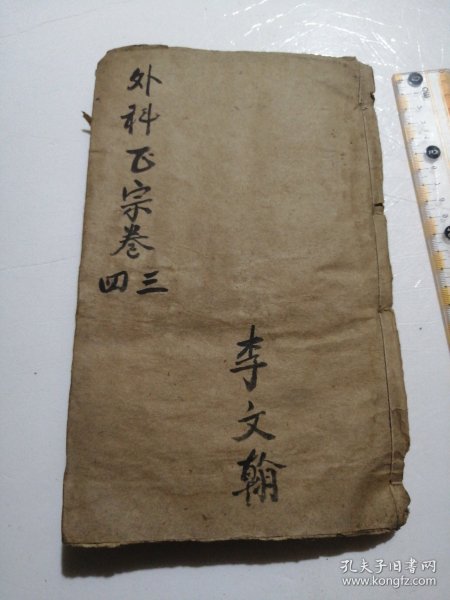 外科正宗卷
三四
李文翰
孔夫子旧书网
www.kongfz.com